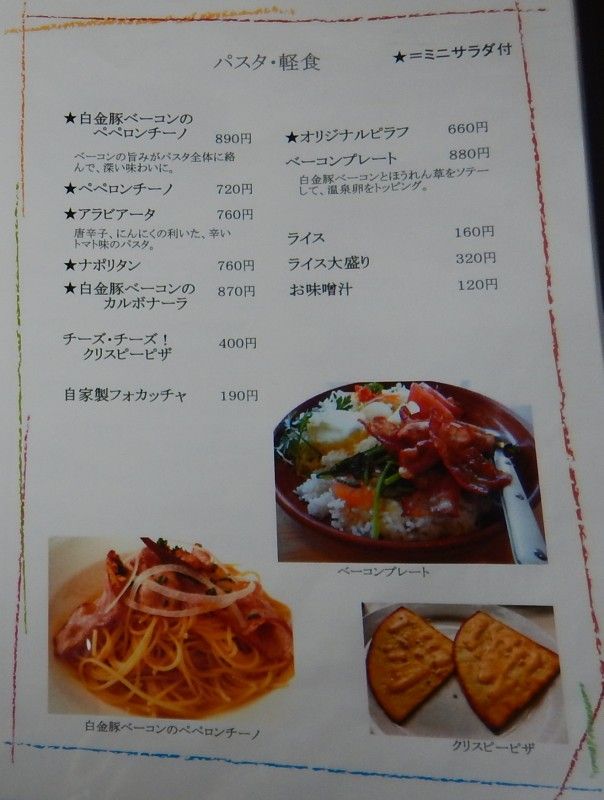 パスタ・軽食
★=ミニサラダ付
★白金豚ベーコンの
ペペロンチーノ 890円
ベーコンの旨みがパスタ全体に絡
んで、深い味わいに。
★ペペロンチーノ 720円
★アラビアータ 760円
唐辛子、にんにくの利いた、辛い
トマト味のパスタ。
★ナポリタン 760円
★白金豚ベーコンの
カルボナーラ 870円
チーズ・チーズ！
クリスピーピザ 400円
自家製フォカッチャ 190円
★オリジナルピラフ 660円
ベーコンプレート 880円
白金豚ベーコンとほうれん草をソテー
して、温泉卵をトッピング。
ライス 160円
ライス大盛り 320円
お味噌汁 120円
ベーコンプレート
白金豚ベーコンのペペロンチーノ
クリスピーピザ